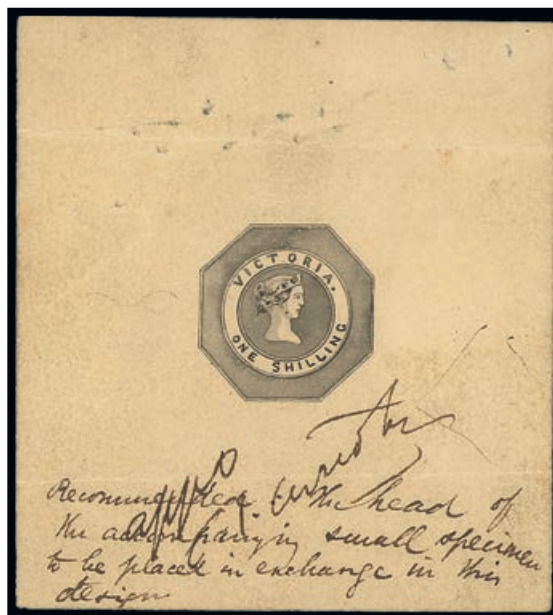 VICTORIA.
ONE SHILLING
Recommended the head of
the accompanying small specimen
to be placed in exchange in this
design